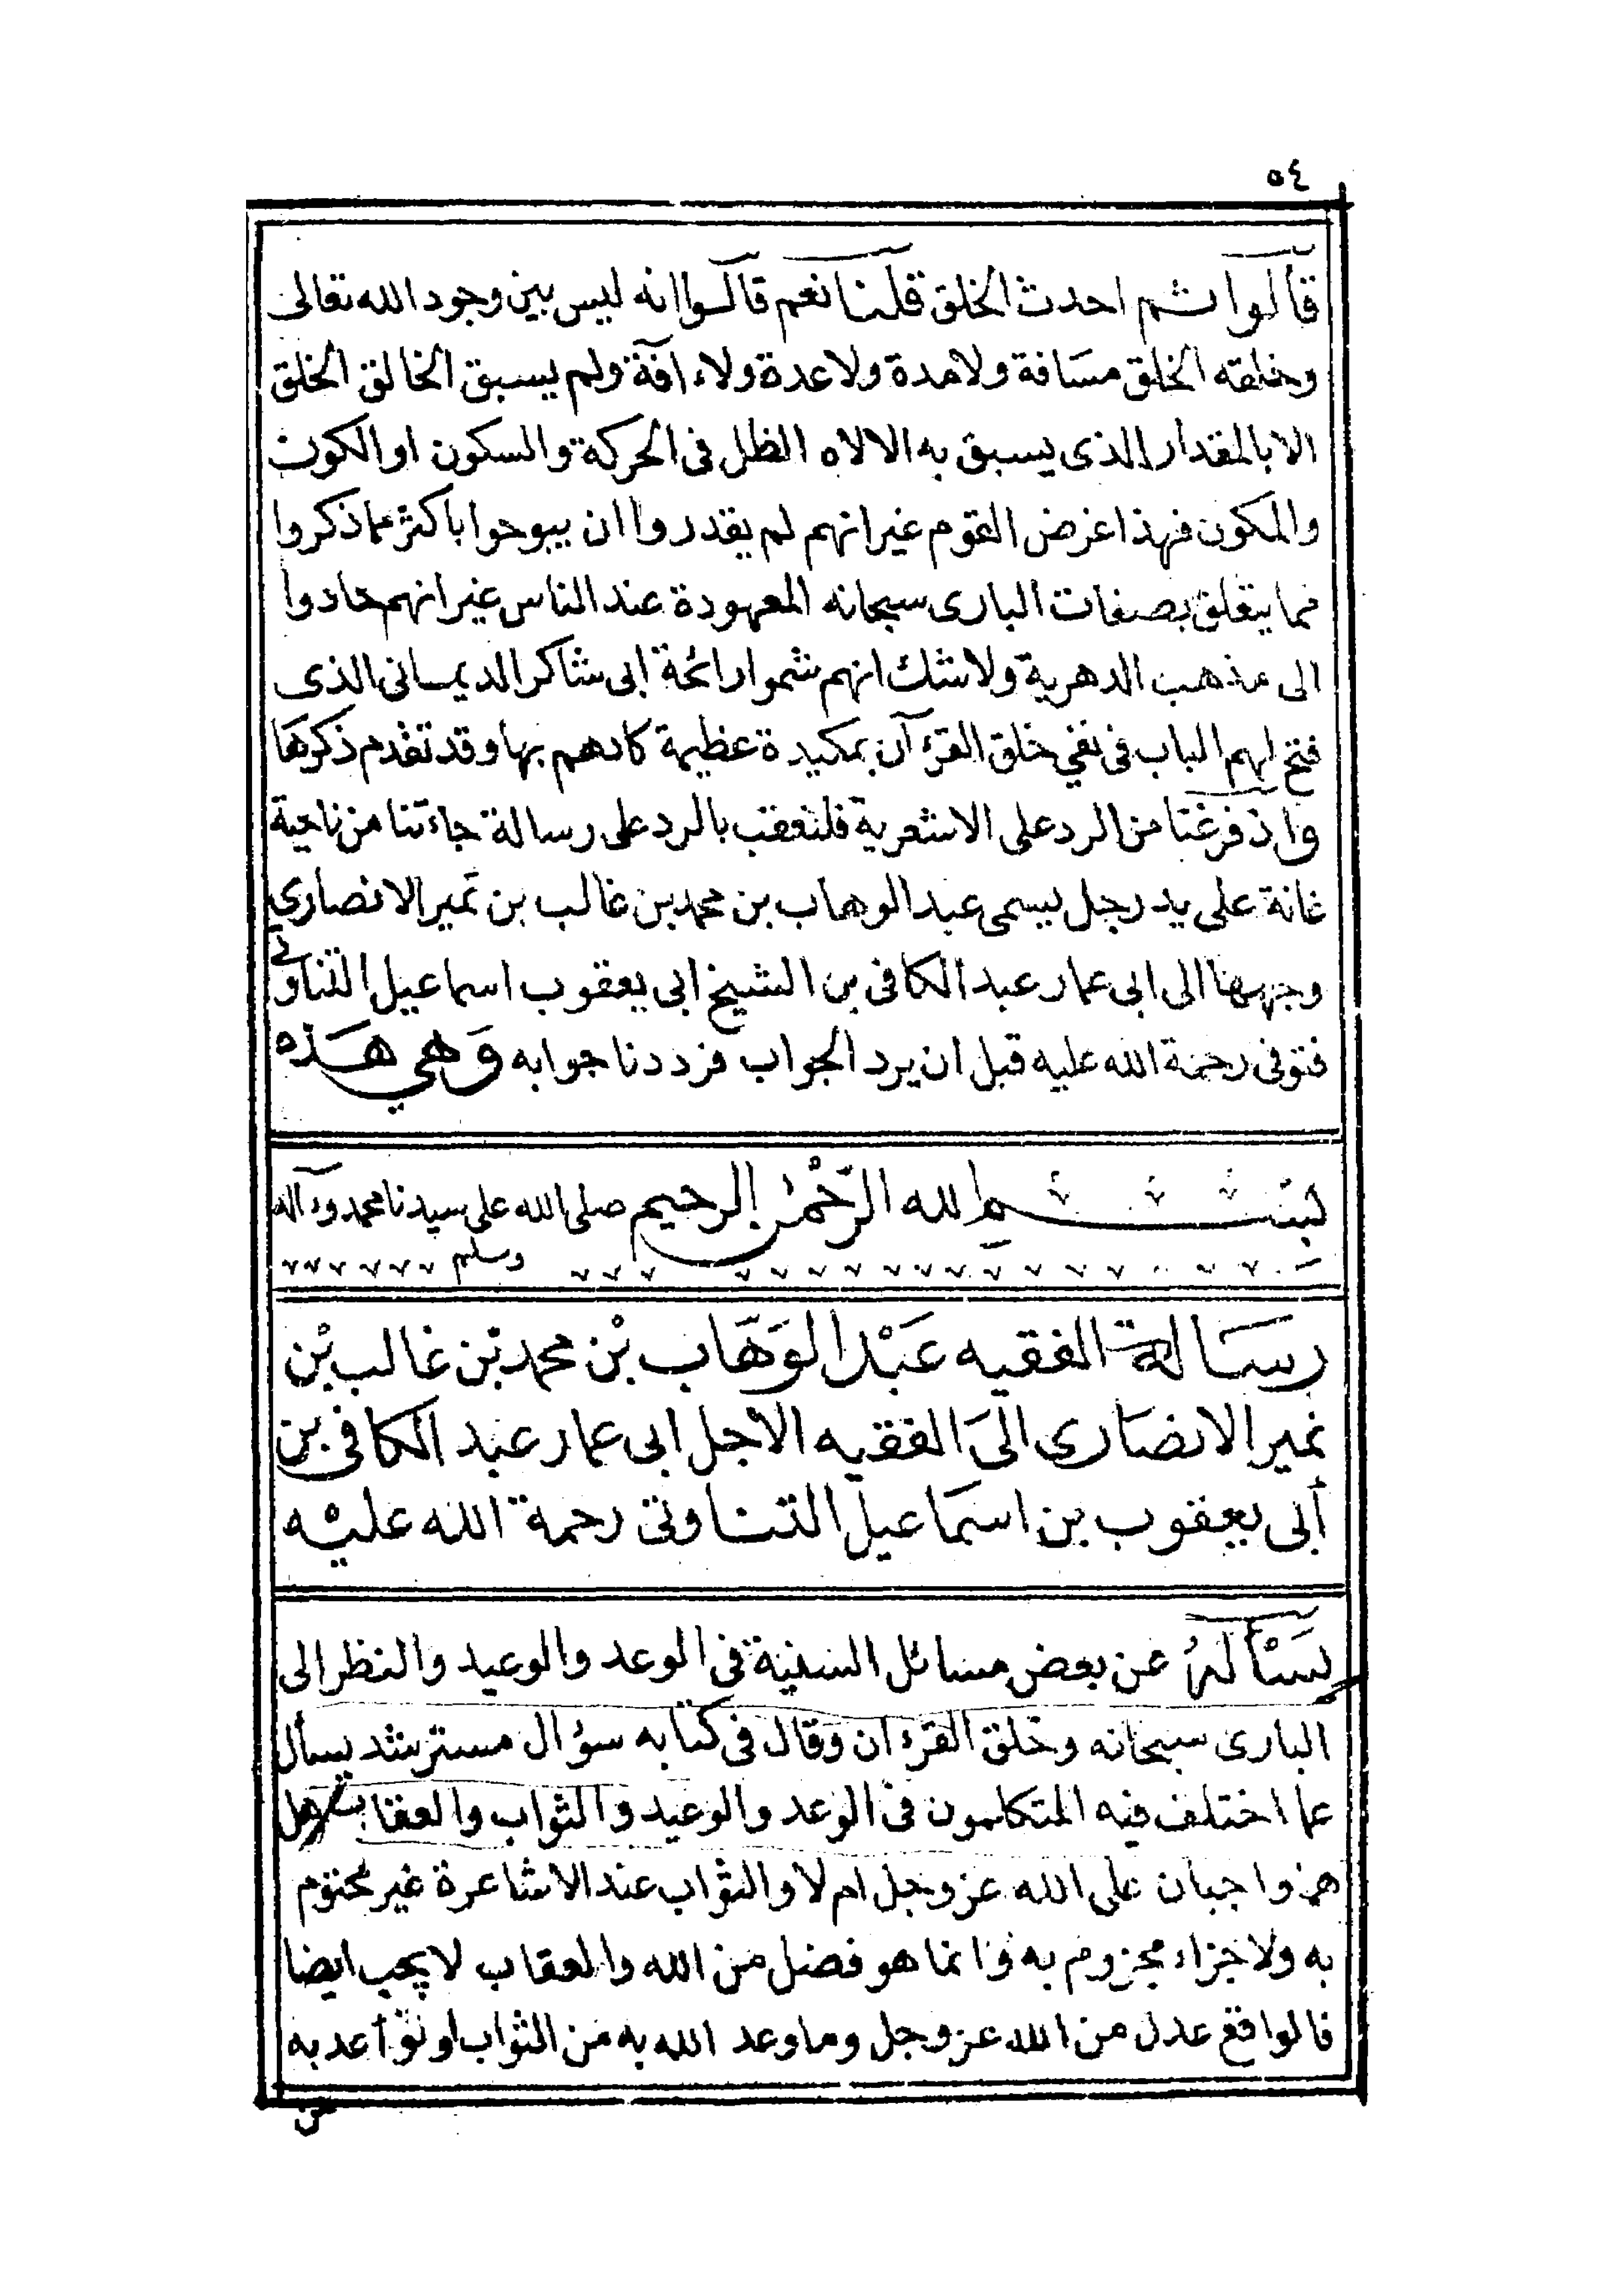 ٥٤
قالوا ثم احدث الخلق قلنا نعم قالوا انه ليس بين وجود الله تعالى
وخلقه الخلق مسافة ولا مدة ولا عدة ولاء افة ولم يسبق الخالق الخلق
الا بالمقدار الذى يسبق به الالاه الظل فى الحركة والسكون او الكون
والمكون فهذا غرض القوم غير انهم لم يقدروا ان يبوحوا باكثر مما ذكروا
مما يتعلق بصفات البارى سبحانه المعهودة عند الناس غير انهم حادوا
الى مذهب الدهرية ولا شك انهم شموا رائحة ابى شاكر الديمانى الذى
فتح لهم الباب فى نفي خلق القرءآن بمكيدة عظيمة كادهم بها وقد تقدم ذكرها
واذ فرغنا من الرد على الاشعرية فلنعقب بالرد على رسالة جاءتنا من ناحية
غانة على يد رجل يسمى عبد الوهاب بن محمد بن غالب بن نمير الانصاري
وجهها الى ابى عمار عبد الكافى بن الشيخ ابى يعقوب اسماعيل التناوتي
فتوفى رحمة الله عليه قبل ان يرد الجواب فرددنا جوابه وَهي هَذه
بسم الله الرّحمٰن الرحيم صلى الله على سيدنا محمد وءآله
وسلم
رسَالة الفقيه عَبْد الوَهَاب بْن محمد بْن غالب بْن
نمير الانصَارى الىَ الفقيه الاجل ابى عمار عبد الكافى بن
أبى يعقوب بن اسمَاعيل التناوتى رحمة الله عليْه
يَسْألهُ عن بعض مسائل السنية فى الوعد والوعيد والنظر الى
البارى سبحانه وخلق القرءان وقال فى كتابه سؤال مسترشد يسأل
عما اختلف فيه المتكلمون فى الوعد والوعيد والثواب والعقاب هل
هما واجبان على الله عز وجل ام لا والثواب عند الاشاعرة غير محتوم
به ولا جزاء مجزوم به وانما هو فضل من الله والعقاب لا يجب ايضا
فالواقع عدل من الله عز وجل وما وعد الله به من الثواب او توأعد به
من